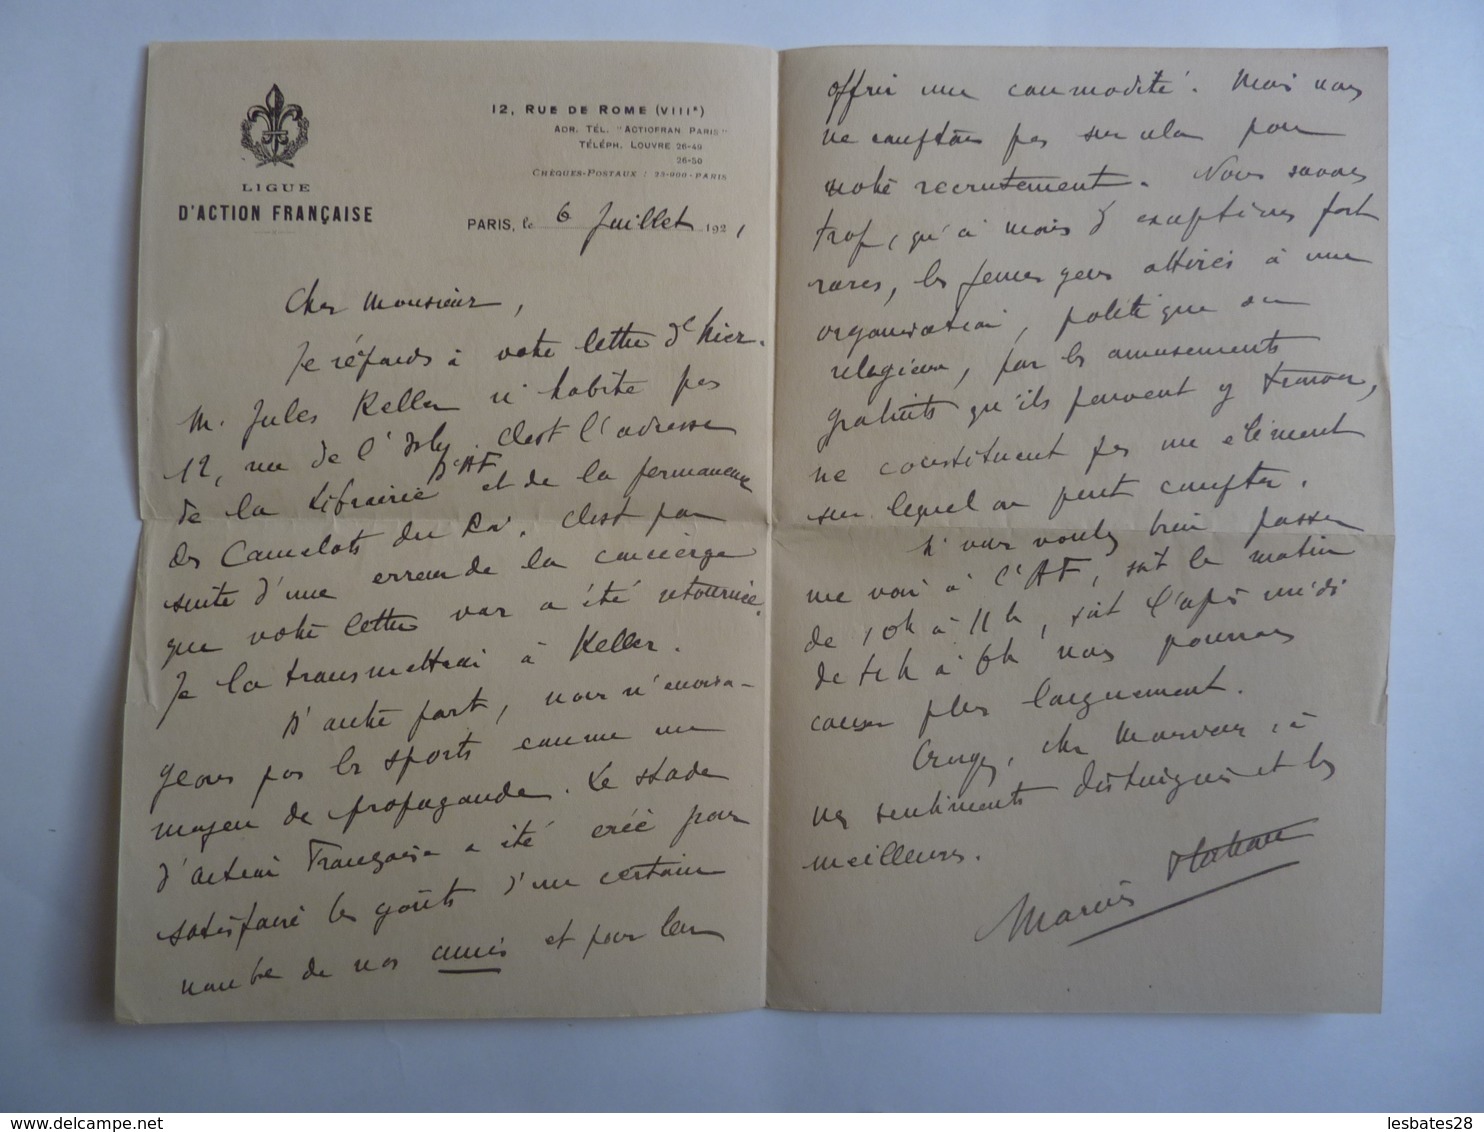 LIGUE
D'ACTION FRANÇAISE
12, RUE DE ROME (VIIIe)
ADR. TÉL. "ACTIOFRAN PARIS"
TÉLÉPH. LOUVRE 26-49
26-50
CHÈQUES-POSTAUX : 23-900-PARIS
PARIS, le 6 Juillet 1921
Cher Monsieur,
Je réponds à votre lettre d'hier.
M. Jules Keller n'habite pas
12, rue de l'Isly. C'est l'adresse
de la librairie d'AF et de la permanence
des Camelots du Roi. C'est par
suite d'une erreur de la concierge
que votre lettre vous a été retournée.
Je la transmettrai à Keller.
D'autre part, nous n'envisa-
geons pas les sports comme un
moyen de propagande. Le stade
d'Action Française a été créé pour
satisfaire les goûts d'un certain
nombre de nos amis et pour leur
offrir une commodité. Mais nous
ne comptons pas sur cela pour
notre recrutement. Nous savons
trop, qu'à moins d'exceptions fort
rares, les jeunes gens attirés à une
organisation, politique ou
religieuse, par les amusements
gratuits qu'ils peuvent y trouver,
ne constituent pas un élément
sur lequel on peut compter.
Si vous voulez bien passer
me voir à l'AF, soit le matin
de 10h à 11h, soit l'après midi
de à 6h nous pourrons
causer plus longuement.
Croyez, cher Monsieur, à
mes sentiments distingués et les
meilleurs.
Marius Plateau
lesbates28